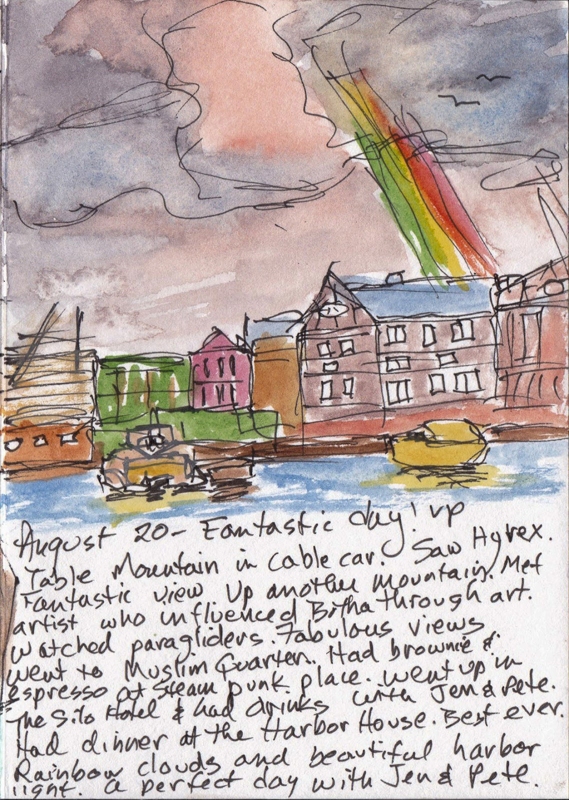 August 20 - Fantastic day! up
Table Mountain in cable car. Saw Hyrex.
Fantastic view up another mountain. Met
artist who influenced through art.
Watched paragliders. Fabulous views.
went to Muslim Quarter. Had brownie &
espresso at Steam punk place. went up in
the Silo Hotel & had drinks with Jen & Pete.
Had dinner at the Harbor House. Best ever.
Rainbow clouds and beautiful harbor
light. a perfect day with Jen & Pete.